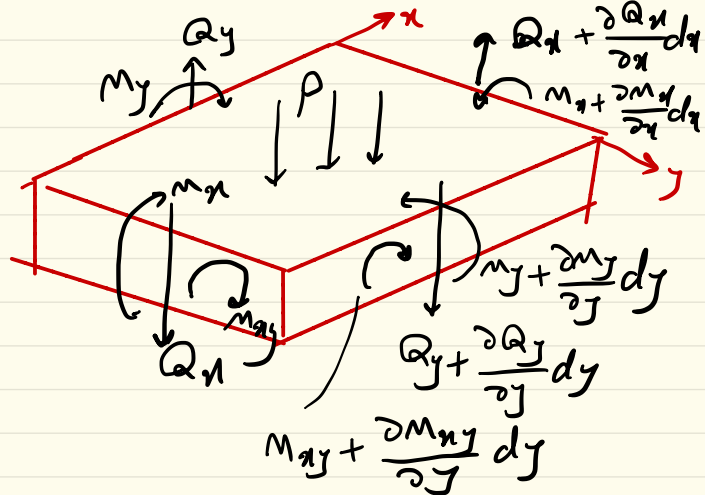 x
Qy
My
P
Qx + ∂Qx/∂x dx
Mx + ∂Mx/∂x dx
y
Mx
Mxy
Qx
My + ∂My/∂y dy
Qy + ∂Qy/∂y dy
Mxy + ∂Mxy/∂y dy